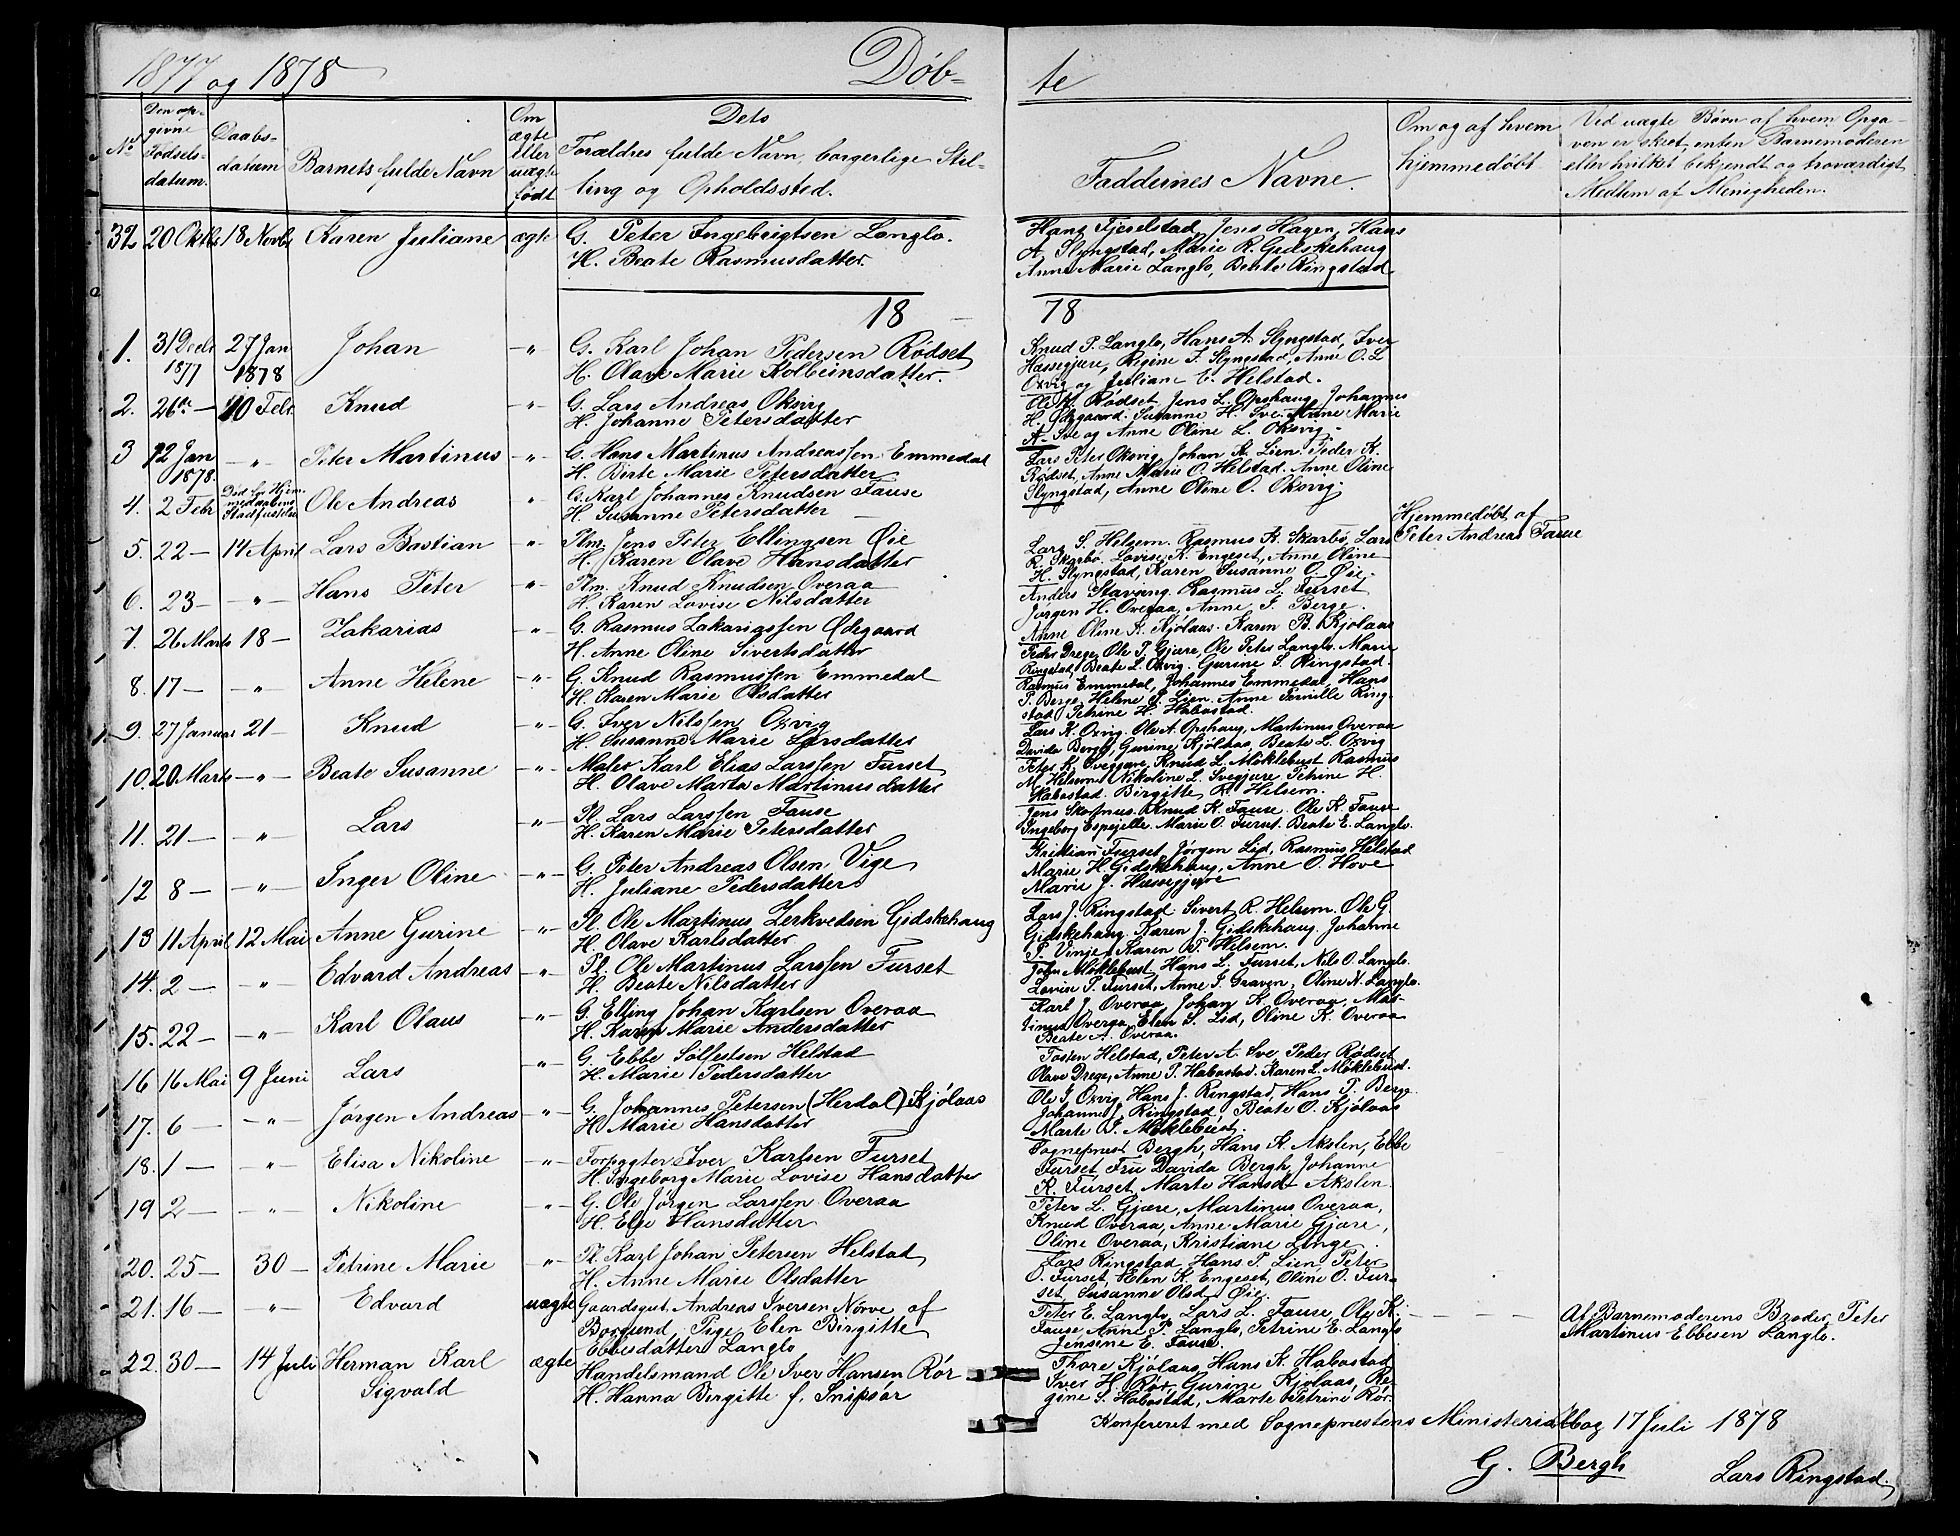 1877 og 1878
Døb-
te
No
Den op-
givne
Fødsels-
datum.
Daabs-
datum
Barnets fulde Navn
Om
ægte
eller
uægte
født
Dets
Forældres fulde Navn, borgerlige Stil-
ling og Opholdssted.
Faddernes Navne.
Om og af hvem
hjemmedøbt
Ved uægte Børn af hvem Opga-
ven er skeet, enten Barnemoderen
eller hvilket bekjendt og troværdigt
Medlem af Menigheden.
32 20 Oktbr 18 Novbr Karen Juliane ægte G. Peter Ingebrigtsen Langlo.
H. Beate Rasmusdatter.
Hans Fjeselstad, Jens Hagen, Hans
A. Slyngstad, Marie R. Gidskehaug
Anne Marie Langlo, Beate Ringstad
18 78
1. 31 Decbr 1877 27 Jan 1878 Johan -"- G. Karl Johan Pedersen Rødset
H. Olave Marie Kolbeinsdatter.
Knud P. Langlo, Hans A. Slyngstad, Iver
Hassegjære, Regine T. Slyngstad, Anne O. L.
Oxvig og Juliane E. Helstad.
2. 26de - 10 Febr Knud -"- G. Lars Andreas Oksvig
H. Johanne Petersdatter
Ole K. Rødset, Jens L. Opshaug, Johannes
H. Ødegaard. Susanne H. Sve. Anne Marie
A. Sve og Anne Oline L. Oksvig.
3 12 Jan 1878. -"- Peter Martinus -"- G. Hans Martinus Andreassen Emmedal
H. Birte Marie Petersdatter
Lars Peter Oksvig, Johan K. Lien, Peder K.
Rødset, Anne Marie O. Helstad. Anne Oline
Slyngstad, Anne Oline O. Oksvig.
4. 2 Febr Død før Hjem-
medaabens
Stadfæstelse Ole Andreas " G. Karl Johannes Knudsen Fause
H. Susanne Petersdatter
Hjemmedøbt af
Peter Andreas Fause
5. 22 - 14 April Lars Bastian " Plm. Jens Peter Ellingsen Øie
H. Karen Olave Hansdatter
Lars S. Helsem. Rasmus K. Skarbø, Lars
R. Skarbø. Lovise K. Engeset, Anne Oline
H. Slyngstad, Karen Susanne O. Øie.
6. 23 - -"- Hans Peter " Plm. Knud Knudsen Overaa
H. Karen Lovise Nilsdatter
Anders Stavseng. Rasmus L. Furset
Jørgen H. Overaa, Anne J. Berge.
Anne Oline K. Kjølaas. Karen B. Kjølaas
7. 26 Marts 18 - Zakarias -"- G. Rasmus Zakariassen Ødegaard
H. Anne Oline Sivertsdatter
Peder Drege, Ole P. Gjære, Ole Peter Langlo. Marie
Ringstad, Beate L. Oxvig. Gurine S. Ringstad.
8. 17 - -"- Anne Helene -"- G. Knud Rasmussen Emmedal
H. Karen Marie Olsdatter
Rasmus Emmedal, Johannes Emmedal, Hans
P. Berge, Helene J. Lien. Anne Pernille Ring-
stad, Petrine H. Habostad.
9. 27 Januar 21 - Knud -"- G. Iver Nilssen Oxvig
H. Susanne Marie Larsdatter
Lars K. Oxvig. Ole A. Opshaug, Martinus Overaa
Davida Bergh, Gurine Kjølaas, Beate L. Oxvig
10. 20 Marts -"- Beate Susanne -"- Maler Karl Elias Larssen Furset
H. Olave Marta Martinusdatter
Peter K. Svegjære, Knud L. Møklebust. Rasmus
M. Helsem. Nikoline L. Svegjære. Petrine H.
Habostad. Birgitte R. Helsem.
11. 21 - " Lars -"- Pl. Lars Larssen Fause
H. Karen Marie Petersdatter
Jens Skotmus. Knud K. Fause. Ole K. Fause
Ingeborg Espejelle. Marie O. Furset. Beate E. Langlo.
12 8 - -"- Inger Oline -"- G. Peter Andreas Olsen Vige
H. Juliane Pedersdatter
Kristian Furset, Jørgen Lid, Rasmus Helstad
Marie H. Gidskehaug, Anne O. Hove
Marie J. Hassegjære
13 11 April 12 Mai Anne Gurine -"- Pl. Ole Martinus Zerkvedsen Gidskehaug
H. Olave Karlsdatter
Lars J. Ringstad. Sivert R. Helsem. Ole G.
Gidskehaug. Karen J. Gidskehaug. Johanne
P. Vinje. Karen P. Helsem.
14. 2 - -"- Edvard Andreas -"- Pl. Ole Martinus Larssen Furset
H. Beate Nilsdatter
John Møklebust, Hans L. Furset, Nils O. Langlo.
Lovise P. Furset, Anne J. Graven, Oline N. Langlo.
15. 22 - -"- Karl Olaus -"- G. Elling Johan Karlsen Overaa
H. Karen Marie Andersdatter
Karl J. Overaa, Johan K. Overaa, Mar-
tinus Overaa, Elen S. Lid, Oline K. Overaa
Beate A. Overaa.
16 16 Mai 9 Juni Lars -"- G. Ebbe Solfestsen Helstad
H. Marie Pedersdatter
Tosten Helstad, Peter A. Sve, Peder Rødset
Olave Drege, Anne P. Habostad. Karen L. Møklebust.
17. 6 - -"- Jørgen Andreas -"- G. Johannes Petersen (Herdal) Kjølaas
H. Marie Hansdatter
Ole J. Oxvig, Hans J. Ringstad, Hans P. Berge
Johanne J. Ringstad, Beate O. Kjølaas
Marte P. Møklebust.
18. 1 - -"- Elisa Nikoline -"- Forpagter Iver Karlsen Furset
H. Ingeborg Marie Lovise Hansdatter
Sognepræst Bergh, Hans K. Akslen, Ebbe
Furset, Fru Davida Bergh, Johanne
K. Furset, Marte Hansd. Akslen.
19 2 - -"- Nikoline -"- G. Ole Jørgen Larssen Overaa
H. Else Hansdatter
Peter L. Gjære, Martinus Overaa,
Knud Overaa, Anne Marie Gjære,
Oline Overaa, Kristiane Linge.
20. 25 - 30 - Petrine Marie -"- Pl. Karl Johan Petersen Helstad
H. Anne Marie Olsdatter
Lars Ringstad, Hans P. Lien, Peter
O. Furset, Elen K. Engeset, Oline O. Fur-
set, Susanne Olsd. Øie.
21. 16 - -"- Edvard uægte Gaardsgut. Andreas Iversen Nørve af
Borgund. Pige Elen Birgitte
Ebbesdatter Langlo
Peter E. Langlo, Lars L. Fause, Ole K.
Fause, Anne P. Langlo, Petrine E. Langlo
Jensine E. Fause.
Af Barnemoderens Broder, Peter
Martinus Ebbesen Langlo.
22. 30 - 14 Juli Herman Karl
Sigvald ægte Handelsmand Ole Iver Hansen Rør
H. Hanna Birgitte f. Snipsør
Thore Kjølaas, Hans K. Habostad
Iver H. Rør, Gurine Kjølaas, Re-
gine S. Habostad, Marte Petrine Rør.
Konfereret med Sognepræstens Ministerialbog 17 Juli 1878
G. Bergh
Lars Ringstad.